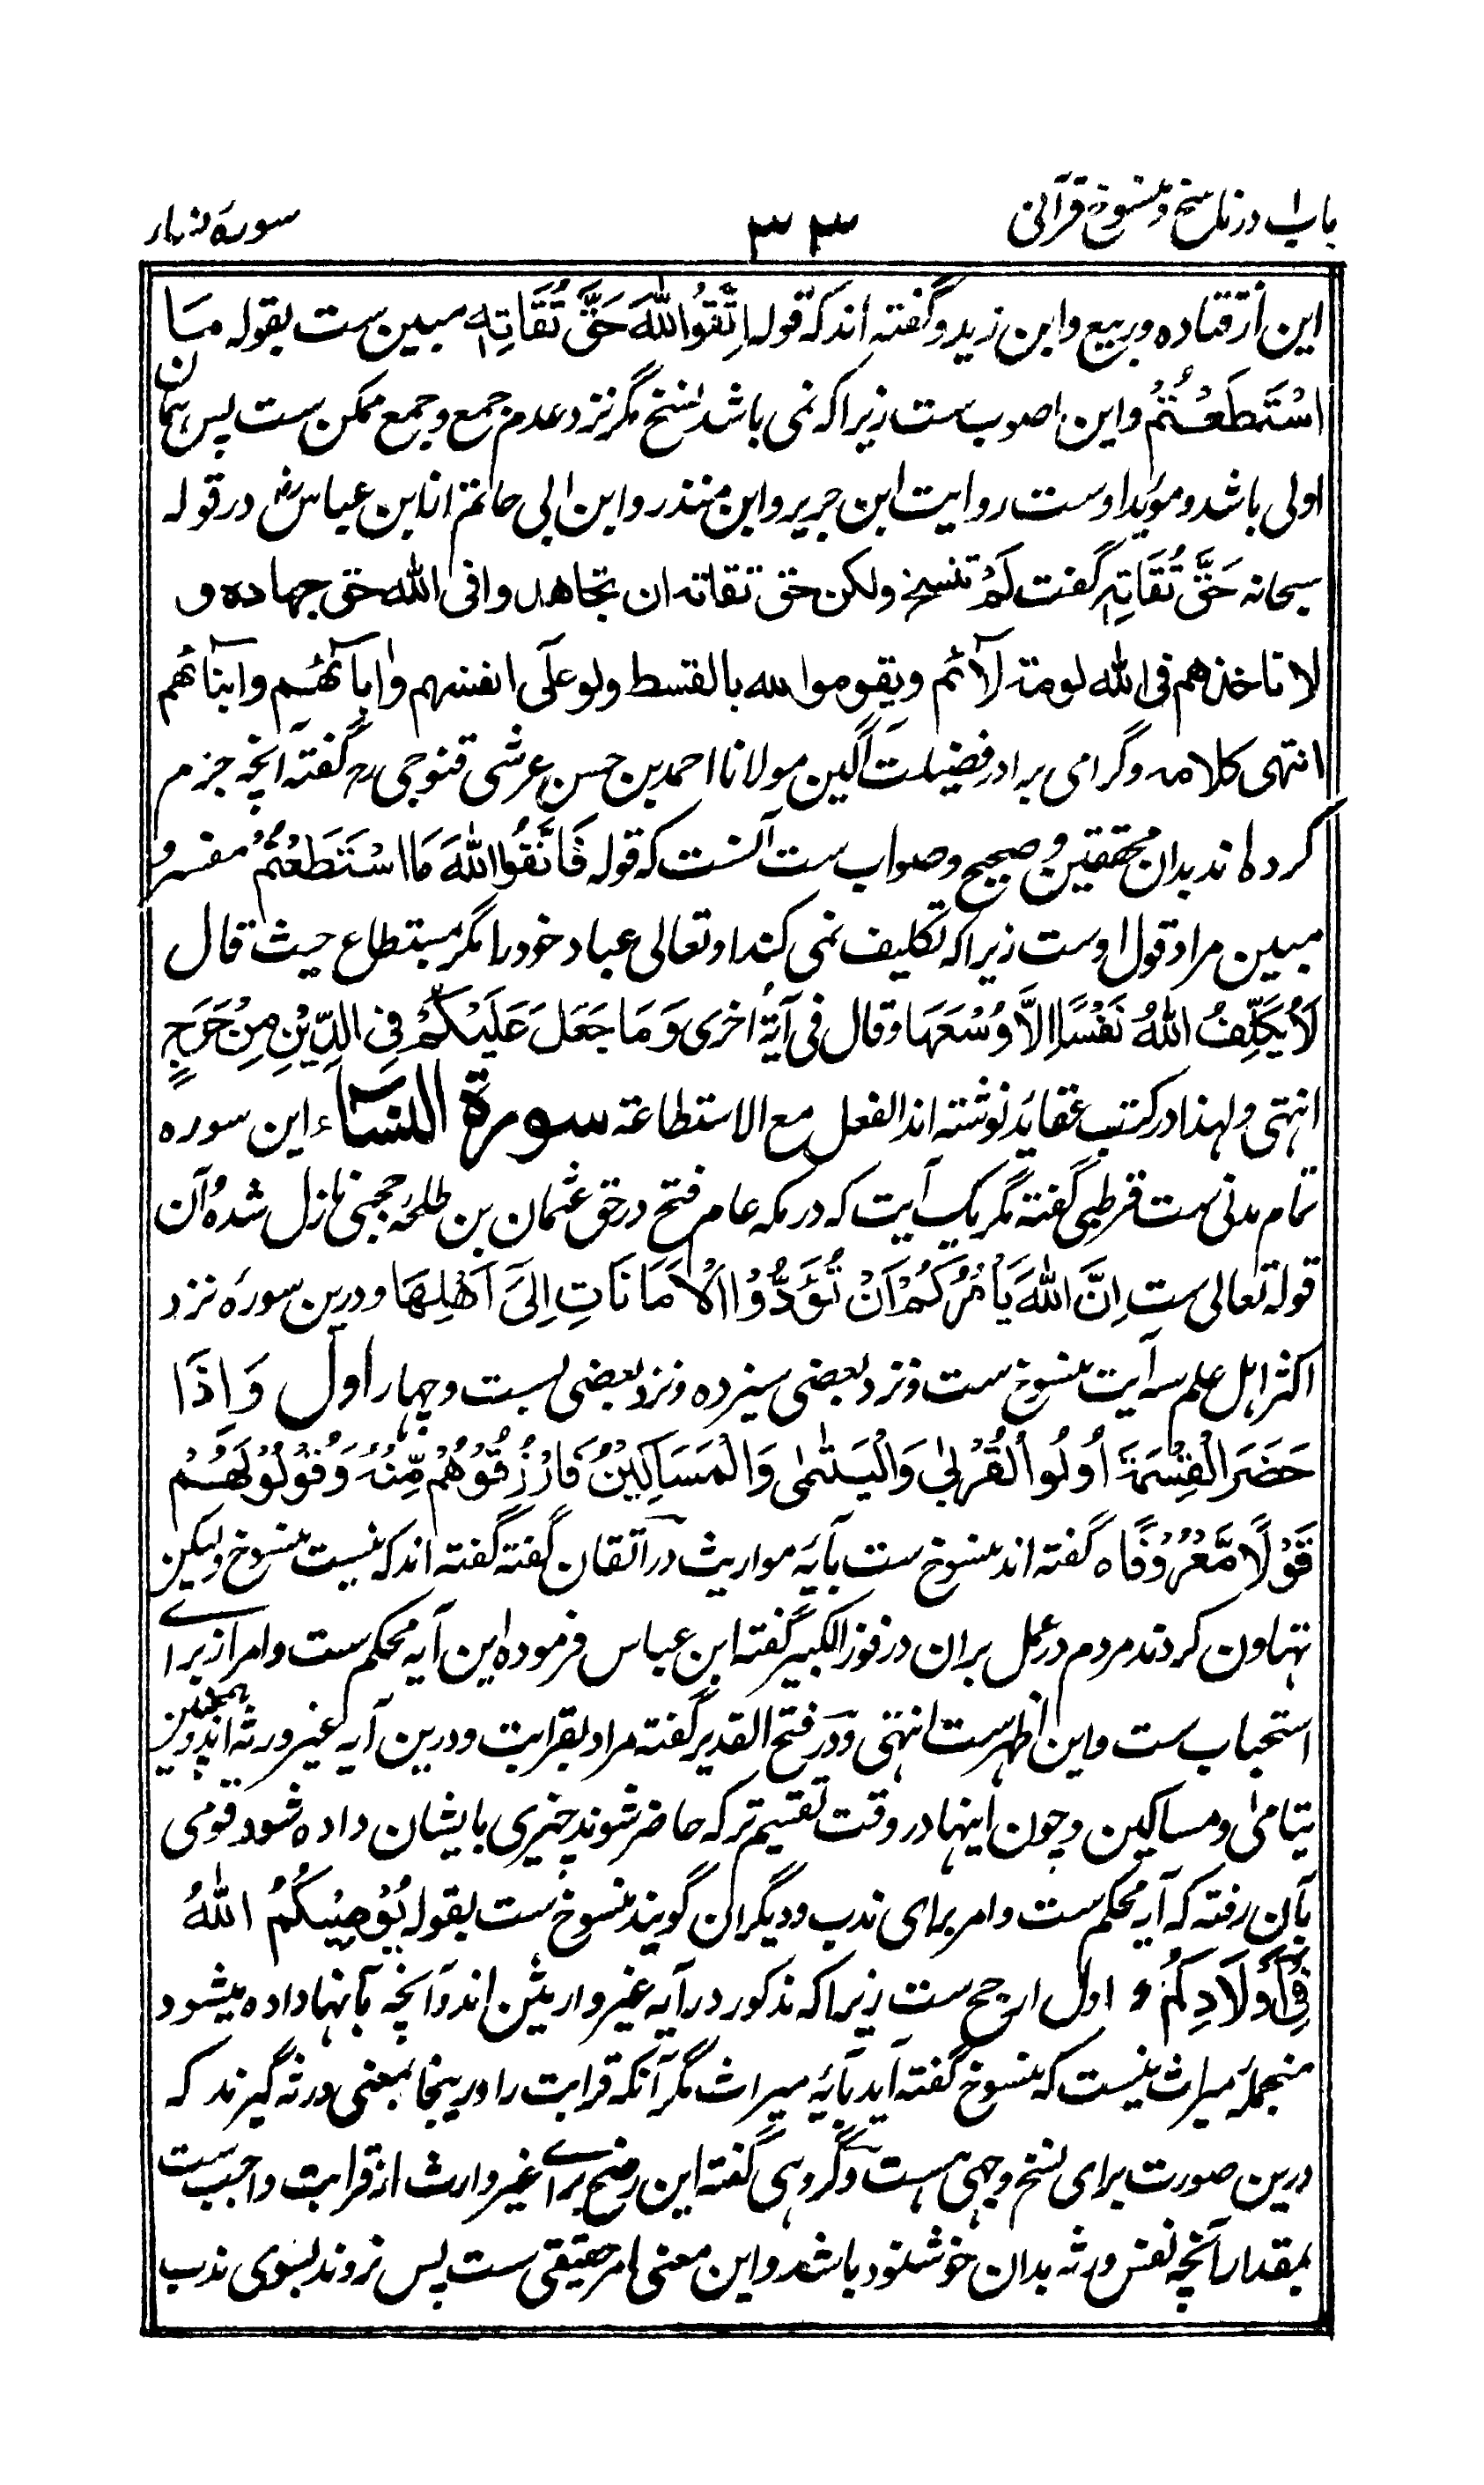 باب ۱ در ناسخ و منسوخ قرآنی ۳۳ سورهٔ نساء
این از قتاده و ربیع و ابن زید و گفته اند که قوله اِتَّقُوا اللّٰهَ حَقَّ تُقَاتِهٖ مبین ست بقوله مَا
اسْتَطَعْتُمْ و این اصوب ست زیرا که نمی باشد نسخ مگر نزد عدم جمع و جمع ممکن ست پس همان
اولی باشد و مؤید اوست روایت ابن جریر و ابن منذر و ابن ابی حاتم از ابن عباس رض در قوله
سبحانه حَقَّ تُقَاتِهٖ گفت لَمْ تنسخ ولکن حق تقاته ان تجاهدوا فی الله حق جهاده و
لا تاخذهم فی الله لومة لآئم ویقوموا لله بالقسط ولو علی انفسهم واٰبآئهم وابنآئهم
انتهی کلامه و گرامی برادر فضیلت آگین مولانا احمد بن حسن عرشی قنوجی رح گفته آنچه جزم
کرده اند بدان محققین و صحیح و صواب ست آنست که قوله فَاتَّقُوا اللّٰهَ مَا اسْتَطَعْتُمْ مفسر و
مبین مراد قول اوست زیرا که تکلیف نمی کند او تعالی عباد خود را مگر بمستطاع حیث قال
لَا یُکَلِّفُ اللّٰهُ نَفْسًا اِلَّا وُسْعَهَا وقال فی آیة اخری وَمَا جَعَلَ عَلَیْکُمْ فِی الدِّیْنِ مِنْ حَرَجٍ
انتهی و لهذا در کتب عقاید نوشته اند الفعل مع الاستطاعة سورة النسآء این سوره
تمام مدنی ست قرطبی گفته مگر یک آیت که در مکه عام فتح در حق عثمان بن طلحه حجبی نازل شده و آن
قوله تعالی ست اِنَّ اللّٰهَ یَاْمُرُکُمْ اَنْ تُؤَدُّوا الْاَمَانَاتِ اِلٰی اَهْلِهَا و درین سوره نزد
اکثر اهل علم سه آیت منسوخ ست و نزد بعضی سیزده و نزد بعضی بست و چهار اول وَاِذَا
حَضَرَ الْقِسْمَةَ اُولُوا الْقُرْبٰی وَالْیَتٰمٰی وَالْمَسَاکِیْنُ فَارْزُقُوْهُمْ مِّنْهُ وَقُوْلُوْا لَهُمْ
قَوْلًا مَّعْرُوْفًا ه گفته اند منسوخ ست بآیه مواریث در اتقان گفته گفته اند که نیست منسوخ ولیکن
تهاون کردند مردم در عمل بران در فوز الکبیر گفته ابن عباس فرموده این آیه محکم ست و امر از برای
استحباب ست و این اظهر ست انتهی و در فتح القدیر گفته مراد بقرابت و درین آیه غیر ورثه اند و همچنین
یتامیٰ و مساکین و چون اینها در وقت تقسیم ترکه حاضر شوند چیزی بایشان داده شود قومی
بآن رفته که آیه محکم ست و امر برای ندب و دیگران گویند منسوخ ست بقوله یُوْصِیْکُمُ اللّٰهُ
فِیْٓ اَوْلَادِکُمْ و اول ارجح ست زیرا که مذکور در آیه غیر وارثین اند و آنچه بآنها داده میشود
منجمله میراث نیست که منسوخ گفته آید بآیه میراث مگر آنکه قرابت را درینجا بمعنی ورثه گیرند که
درین صورت برای نسخ وجهی هست و گروهی گفته این رضخ برای غیر وارث از قرابت واجب ست
بمقدار آنچه نفس ورثه بدان خوشنود باشد و این معنی امر حقیقی ست پس نروند بسوی ندب